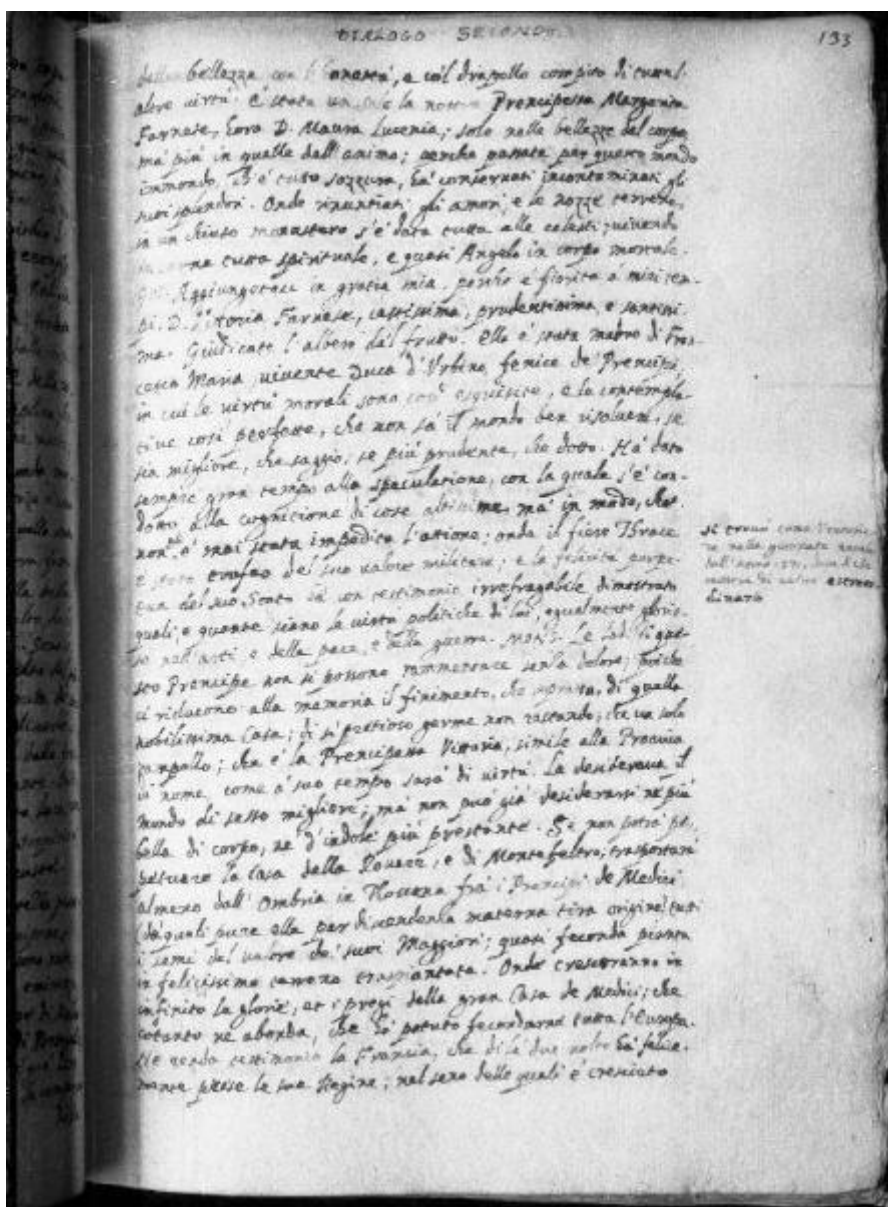 DIALOGO SECONDO.
133
della bellezza con l'onestà, e co'l drappello compito di tutte l'
altre virtù. È stata la nostra Prencipessa Margarita
Farnese, hora D. Maura Lucenia; solo nelle bellezze del corpo,
mà più in quelle dell'anima; perche passata per questo mondo
immondo, ch'è tutto sozzura, hà conservati incontaminati gli
suoi splendori. Onde rinuntiati gli amori, e le nozze terrene,
in un chiuso monastero s'è data tutta alle celesti; vivendo
in carne tutta spirituale, e quasi Angelo in corpo mortale.
Aggiungetece in gratia mia, perche è fiorita a' miei tem-
pi, D. Vittoria Farnese, castissima, prudentissima, e santissi-
ma. Giudicate l'albero dal frutto. Ella è stata madre di Fran-
cesco Maria, vivente Duca d'Urbino, fenice de' Prencipi,
in cui le virtù morali sono così esquisite, e le contempla-
tive così perfette, che non sà il mondo ben risolversi, se
sia migliore, che saggio, se più prudente, che dotto. Hà dato
sempre gran tempo alla speculatione, con la quale s'è con-
dotto alla cognitione di cose altissime, mà in modo, che
non è mai stata impedita l'attione; onde il fiero Thrace
è stato trofeo del suo valore militare; e la felicità perpe-
tua del suo Stato hà con testimonio irrefragabile dimostrato
quali, e quante siano le virtù politiche di lui, egualmente glorio-
so nell'arti, e della pace, e della guerra. Le lodi di que-
sto Prencipe non si possono rammentare senza dolore; poiche
ci riducono alla memoria il finimento, che di quella
nobilissima Casa; di sì pretioso germe non restando, che un solo
rampollo; che è la Prencipessa Vittoria, simile alla Proavia
di nome, come a' suo tempo sarà di virtù. La desiderava il
mondo di sesso migliore; mà non può già desiderarsi nè più
bella di corpo, nè d'indole più prestante. Se non potrà per-
petuare la Casa della Rovere, e di Montefeltro, trasportarà
almeno dall'Ombria in Toscana frà i Prencipi de Medici
(da' quali pure ella per discendenza materna tira origine) tutti
i semi del valore de' suoi Maggiori; quasi feconda pianta
in felicissimo terreno traspiantata. Onde cresceranno in
infinito le glorie, et i pregi della gran Casa de Medici; che
cotanto ne abonda, che hà potuto fecondarne tutta l'Europa.
Ne renda testimonio la Francia, che di là due volte hà felice-
mente prese le sue Regine; nel seno delle quali è cresciuto
si trovò come Venturie-
re nella giornata navale
dell'anno 1571,
valore estraor-
dinario